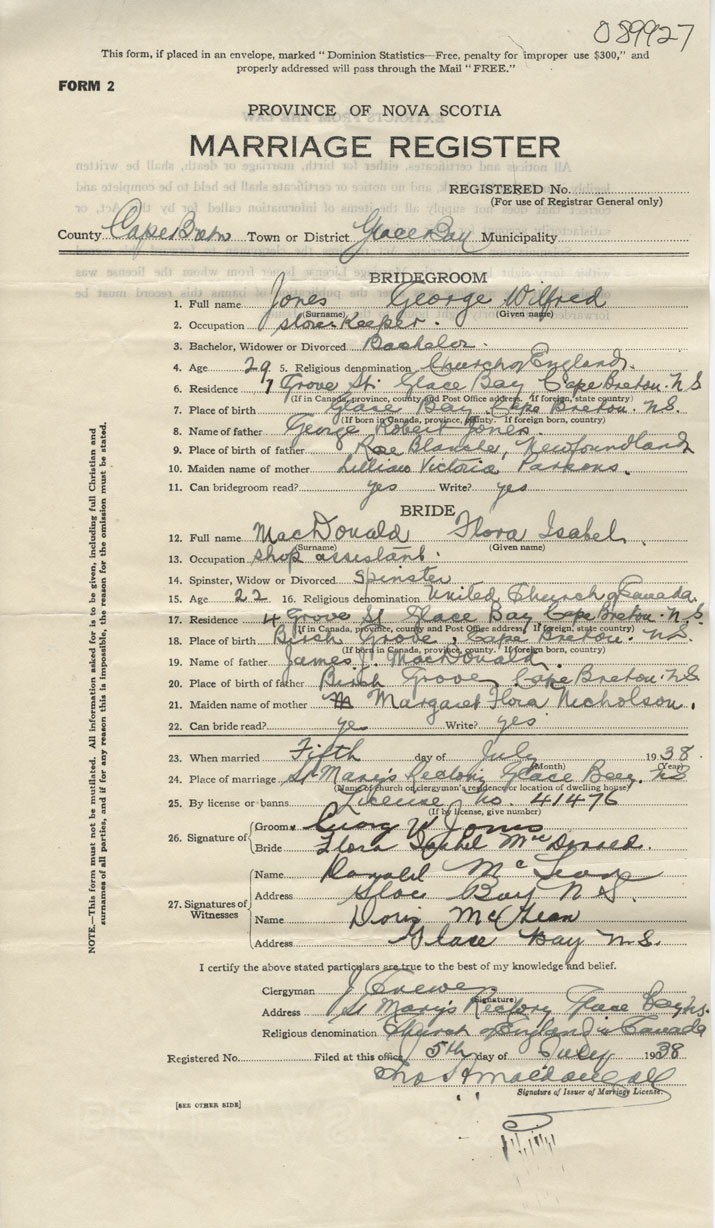 089927
This form, if placed in an envelope, marked "Dominion Statistics—Free, penalty for improper use $300," and
properly addressed will pass through the Mail "FREE."
FORM 2
PROVINCE OF NOVA SCOTIA
MARRIAGE REGISTER
REGISTERED No.
(For use of Registrar General only)
County Cape Breton Town or District Glace Bay Municipality
BRIDEGROOM
1. Full name Jones George Wilfred
(Surname) (Given name)
2. Occupation store Keeper.
3. Bachelor, Widower or Divorced Bachelor.
4. Age 29 5. Religious denomination Church of England.
6. Residence 7 Grove St. Glace Bay Cape Breton. N.S
(If in Canada, province, county and Post Office address. If foreign, state country)
7. Place of birth Glace Bay. Cape Breton. N.S.
(If born in Canada, province, county. If foreign born, country)
8. Name of father George Robert Jones
9. Place of birth of father Rose Blanche, Newfoundland
10. Maiden name of mother Lillian Victoria Parkons.
11. Can bridegroom read? yes Write? yes
BRIDE
12. Full name MacDonald Flora Isabel.
(Surname) (Given name)
13. Occupation shop assistant.
14. Spinster, Widow or Divorced spinster
15. Age 22 16. Religious denomination United Church of Canada.
17. Residence 4 Grove St Glace Bay Cape Breton. N.S.
(If in Canada, province, county and Post Office address, If foreign, state country)
18. Place of birth Birch Grove, Cape Breton. N.S.
(If born in Canada, province, county. If foreign born, country)
19. Name of father James J. MacDonald.
20. Place of birth of father Birch Grove, Cape Breton. N.S
21. Maiden name of mother Margaret Flora Nicholson.
22. Can bride read? yes Write? yes
23. When married Fifth day of July 1938
(Month) (Year)
24. Place of marriage St Mary's Rectory Glace Bay. NS
(Name of church or clergyman's residence or location of dwelling house)
25. By license or banns License no. 41476
(If by license, give number)
26. Signature of Groom George W Jones
Bride Flora Isabel McDonald.
27. Signatures of Witnesses Name Donald McLean
Address Glace Bay N S.
Name Doris McLean
Address Glace Bay N.S.
I certify the above stated particulars are true to the best of my knowledge and belief.
Clergyman J
(Signature)
Address St Mary's Rectory Glace Bay N.S.
Religious denomination Church of England in Canada
Registered No. Filed at this office 5th day of July 1938
Signature of Issuer of Marriage License.
[SEE OTHER SIDE]
NOTE.—This form must not be mutilated. All information asked for is to be given, including full Christian and
surnames of all parties, and if for any reason this is impossible, the reason for the omission must be stated.